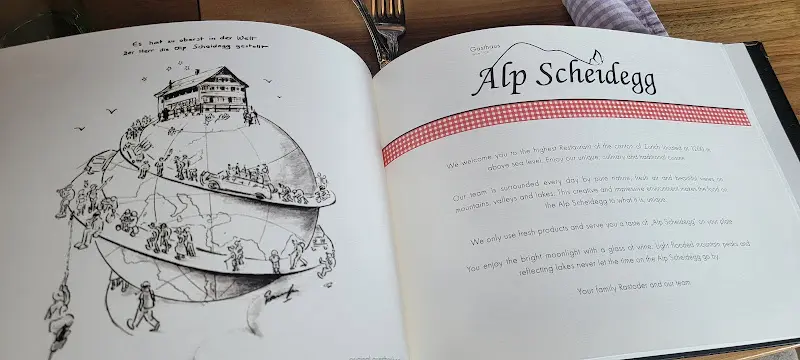 Es hat zu oberst in der Welt
der Herr die Alp Scheidegg gestellt
Gasthaus
Alp Scheidegg
We welcome you to the highest Restaurant of the canton of Zurich located at 1200 m
above sea level. Enjoy our unique culinary and traditional cuisine.
Our team is surrounded every day by pure nature, fresh air and beautiful views on
mountains, valleys and lakes. This creative and impressive environment makes the food on
the Alp Scheidegg to what it is, unique.
We only use fresh products and serve you a taste of „Alp Scheidegg“ on your plate.
You enjoy the bright moonlight with a glass of wine. Light flooded mountain peaks and
reflecting lakes never let the time on the Alp Scheidegg go by.
Your family Rastoder and our team